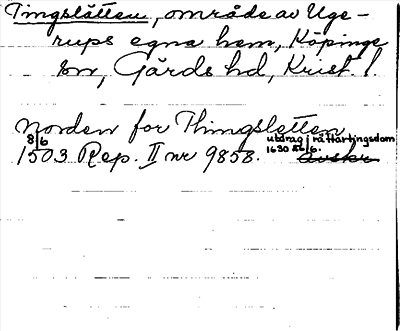 Tingslätten, område av Uge-
rups egna hem, Köpinge
sn, Gärds hd, Krist. l
Norden for Thingsletten
8/6 1503 Rep. II nr 9858. utdrag 1630 26/6. rättartingsdom